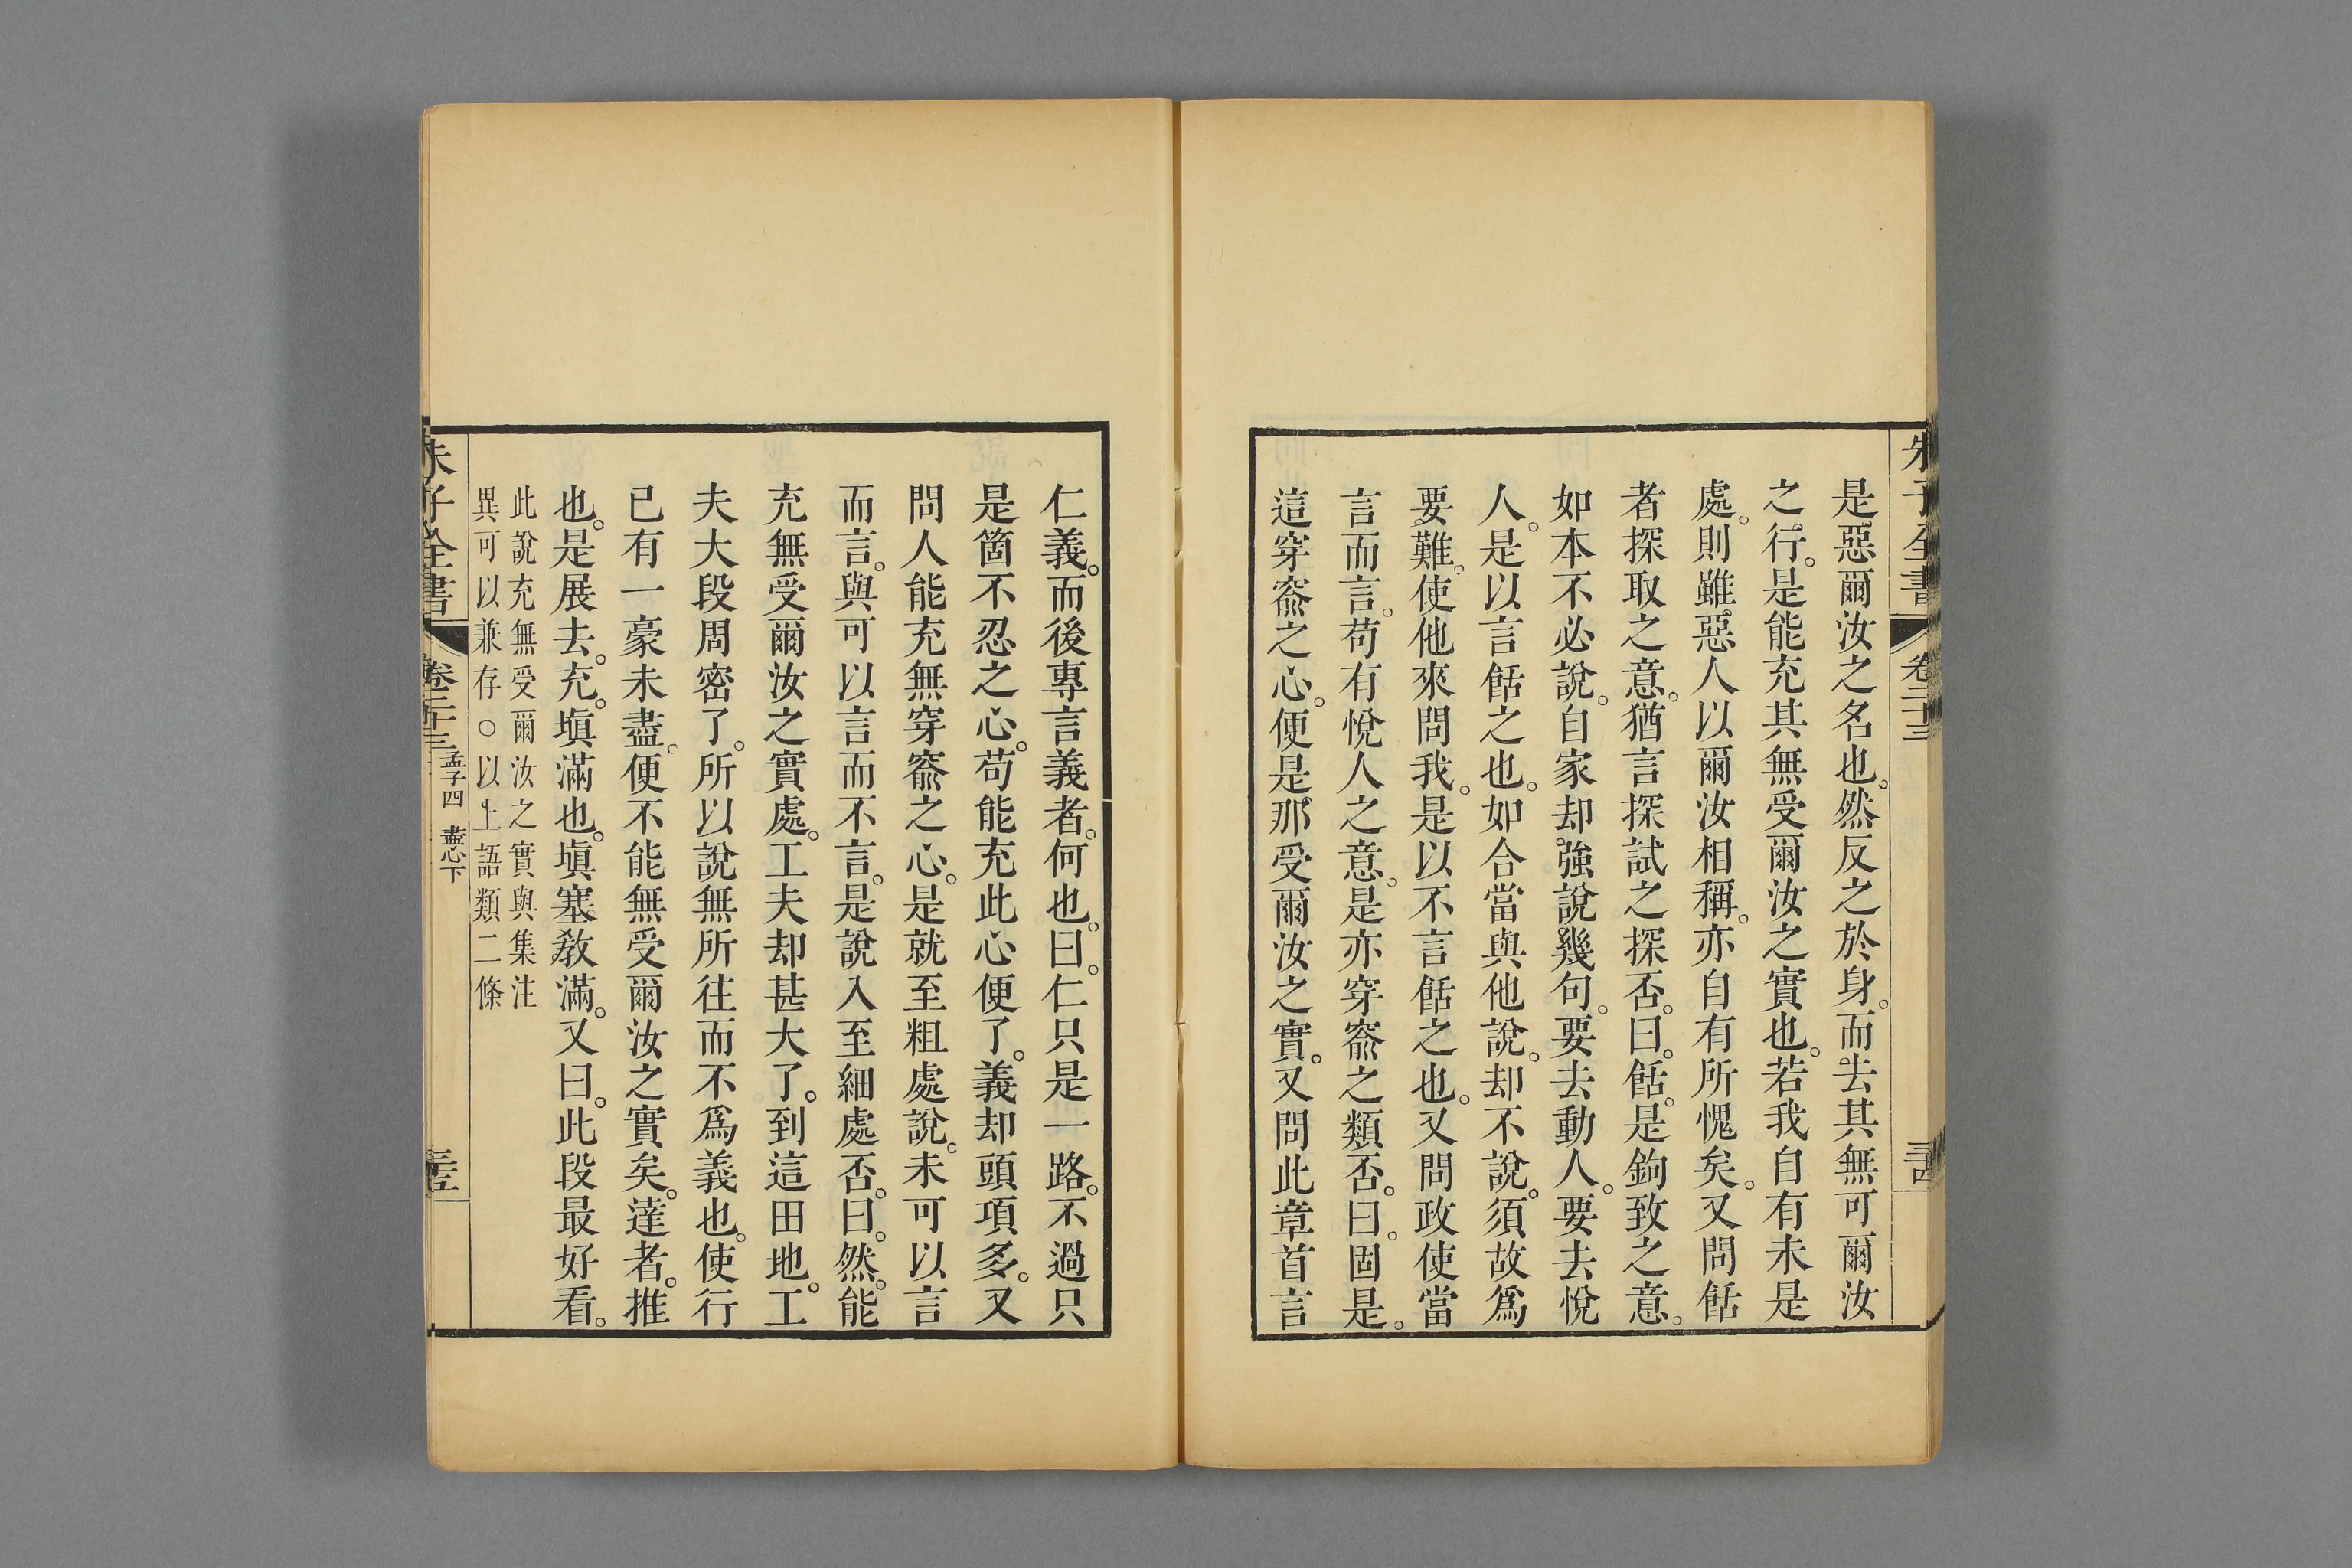 朱子全書 卷二十三
是惡爾汝之名也。然反之於身。而去其無可爾汝
之行。是能充其無受爾汝之實也。若我自有未是
處。則雖惡人以爾汝相稱。亦自有所愧矣。又問餂
者探取之意。猶言探試之探否。曰。餂。是鉤致之意。
如本不必說。自家却強說幾句。要去動人。要去悅
人。是以言餂之也。如合當與他說。却不說。須故爲
要難。使他來問我。是以不言餂之也。又問政使當
言而言。苟有悅人之意。是亦穿窬之類否。曰。固是。
這穿窬之心。便是那受爾汝之實。又問此章首言
仁義。而後專言義者。何也。曰。仁只是一路。不過只
是箇不忍之心。苟能充此心便了。義却頭項多。又
問人能充無穿窬之心。是就至粗處說。未可以言
而言。與可以言而不言。是說入至細處否。曰。然。能
充無受爾汝之實處。工夫却甚大了。到這田地。工
夫大段周密了。所以說無所往而不爲義也。使行
已有一豪未盡。便不能無受爾汝之實矣。達者。推
也。是展去。充。塡滿也。塡塞敎滿。又曰。此段最好看。
此說充無受爾汝之實與集注
異可以兼存○以上語類二條
朱子全書 卷二十三 孟子四 盡心下